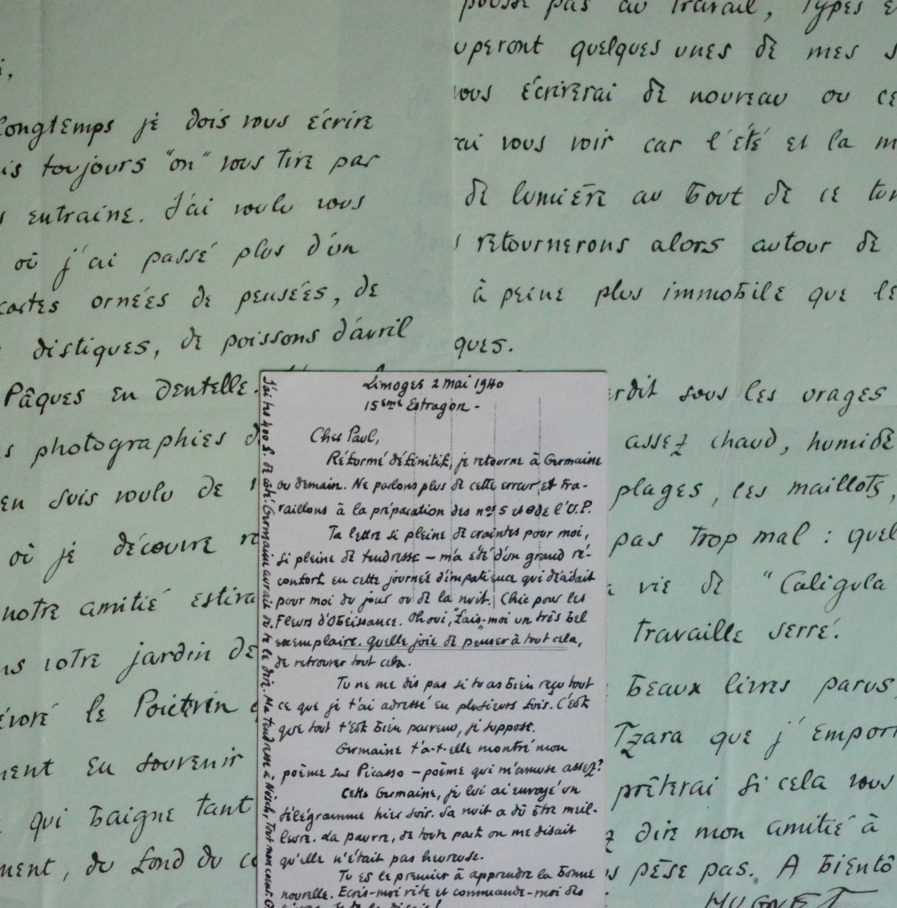 longtemps je dois vous écrire
toujours "on" vous tire par
entraine. J'ai voulu vous
où j'ai passé plus d'un
cartes ornées de pensées, de
distiques, de poissons d'avril
Pâques en dentelle.
photographies
en suis voulu de
où je découvre
notre amitié
votre jardin de
le Poictrin
en souvenir
qui baigne tant
du fond du
pas au travail, types
quelques unes de mes
écrirerai de nouveau ou ce
vous voir car l'été et la
de lumière au bout de ce
retournerons alors autour de
à peine plus immobile que le
ques.
sous les orages
assez chaud, humide
plages, les maillots,
pas trop mal : quel
vie de "Caligula
travaille serré.
beaux livres parus,
Tzara que j'empor
prêterai si cela vous
dire mon amitié à
pèse pas. A bientô
HUGNET
Limoges 2 mai 1940
15ème Estragon -
Cher Paul,
Réformé définitif, je retourne à Germaine
ou demain. Ne parlons plus de cette erreur et tra-
vaillons à la préparation des nos 5 et 6 de l'U.P.
Ta lettre si pleine de craintes pour moi,
si pleine de tendresse - m'a été d'un grand ré-
confort en cette journée d'impatience qui décidait
pour moi du jour ou de la nuit. Chic pour les
Fleurs d'Obéissance. Oh oui, "fais"-moi un très bel
exemplaire. Quelle joie de penser à tout cela,
de retrouver tout cela.
Tu ne me dis pas si tu as bien reçu tout
ce que je t'ai adressé en plusieurs fois. C'est
que tout t'est bien parvenu, je suppose.
Germaine t'a-t-elle montré mon
poème sur Picasso - poème qui m'amuse assez?
Cette Germaine, je lui ai envoyé un
télégramme hier soir. Sa nuit a dû être meil-
leure. La pauvre, de toute part on me disait
qu'elle n'était pas heureuse.
Tu es le premier à apprendre la bonne
nouvelle. Ecris-moi vite et commande-moi des
J'ai 400 g. de café. Germaine aurait dû te le dire. Ma tendresse à Nusch, Tout mon cœur. G